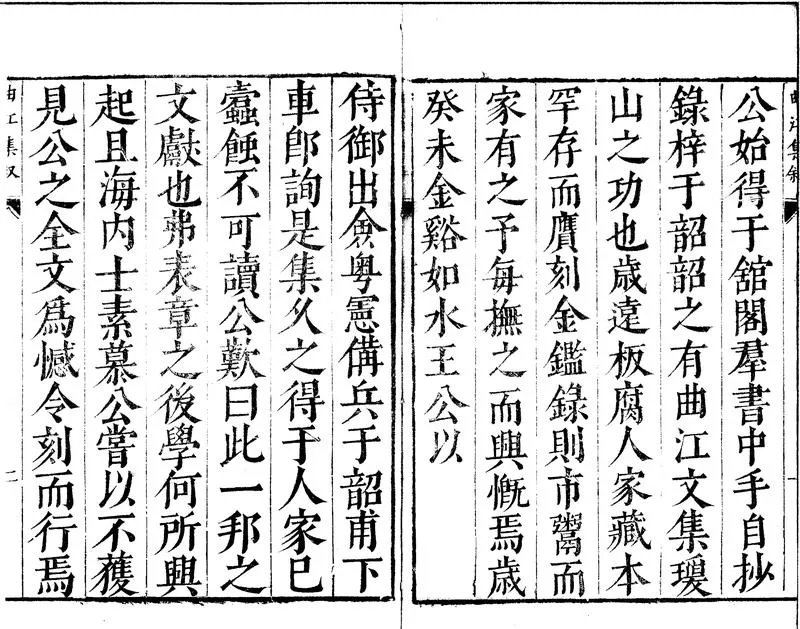 曲江集敘
公始得于舘閣羣書中手自抄
錄梓于韶韶之有曲江文集瓊
山之功也歲遠板腐人家藏本
罕存而贋刻金鑑錄則市鬻而
家有之予每撫之而興慨焉歲
癸未金谿如水王公以
侍御出僉粤憲備兵于韶甫下
車卽詢是集久之得于人家已
蠹蝕不可讀公歎曰此一邦之
文獻也弗表章之後學何所興
起且海内士素慕公嘗以不獲
見公之全文爲憾令刻而行焉
曲江集叙
二